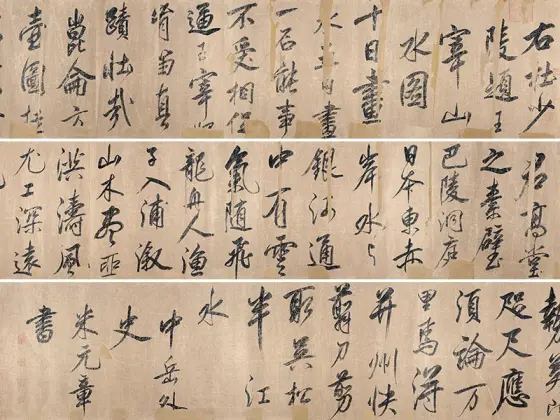 右壮少
陵題王
宰山
水圖
十日畫
水五日畫
一石能事
不受相促
逼王宰始
肯留真
蹟壮哉
崑崙方
壺圖挂
君高堂
之素壁
巴陵洞庭
日本東赤
岸水与
銀河通
中有雲
氣随飛
龍舟人漁
子入浦溆
山木盡亞
洪濤風
尤工深遠
咫尺應
須論万
里焉得
并州快
剪刀剪
取吴松
半江
水
中岳外
史
米元章
書